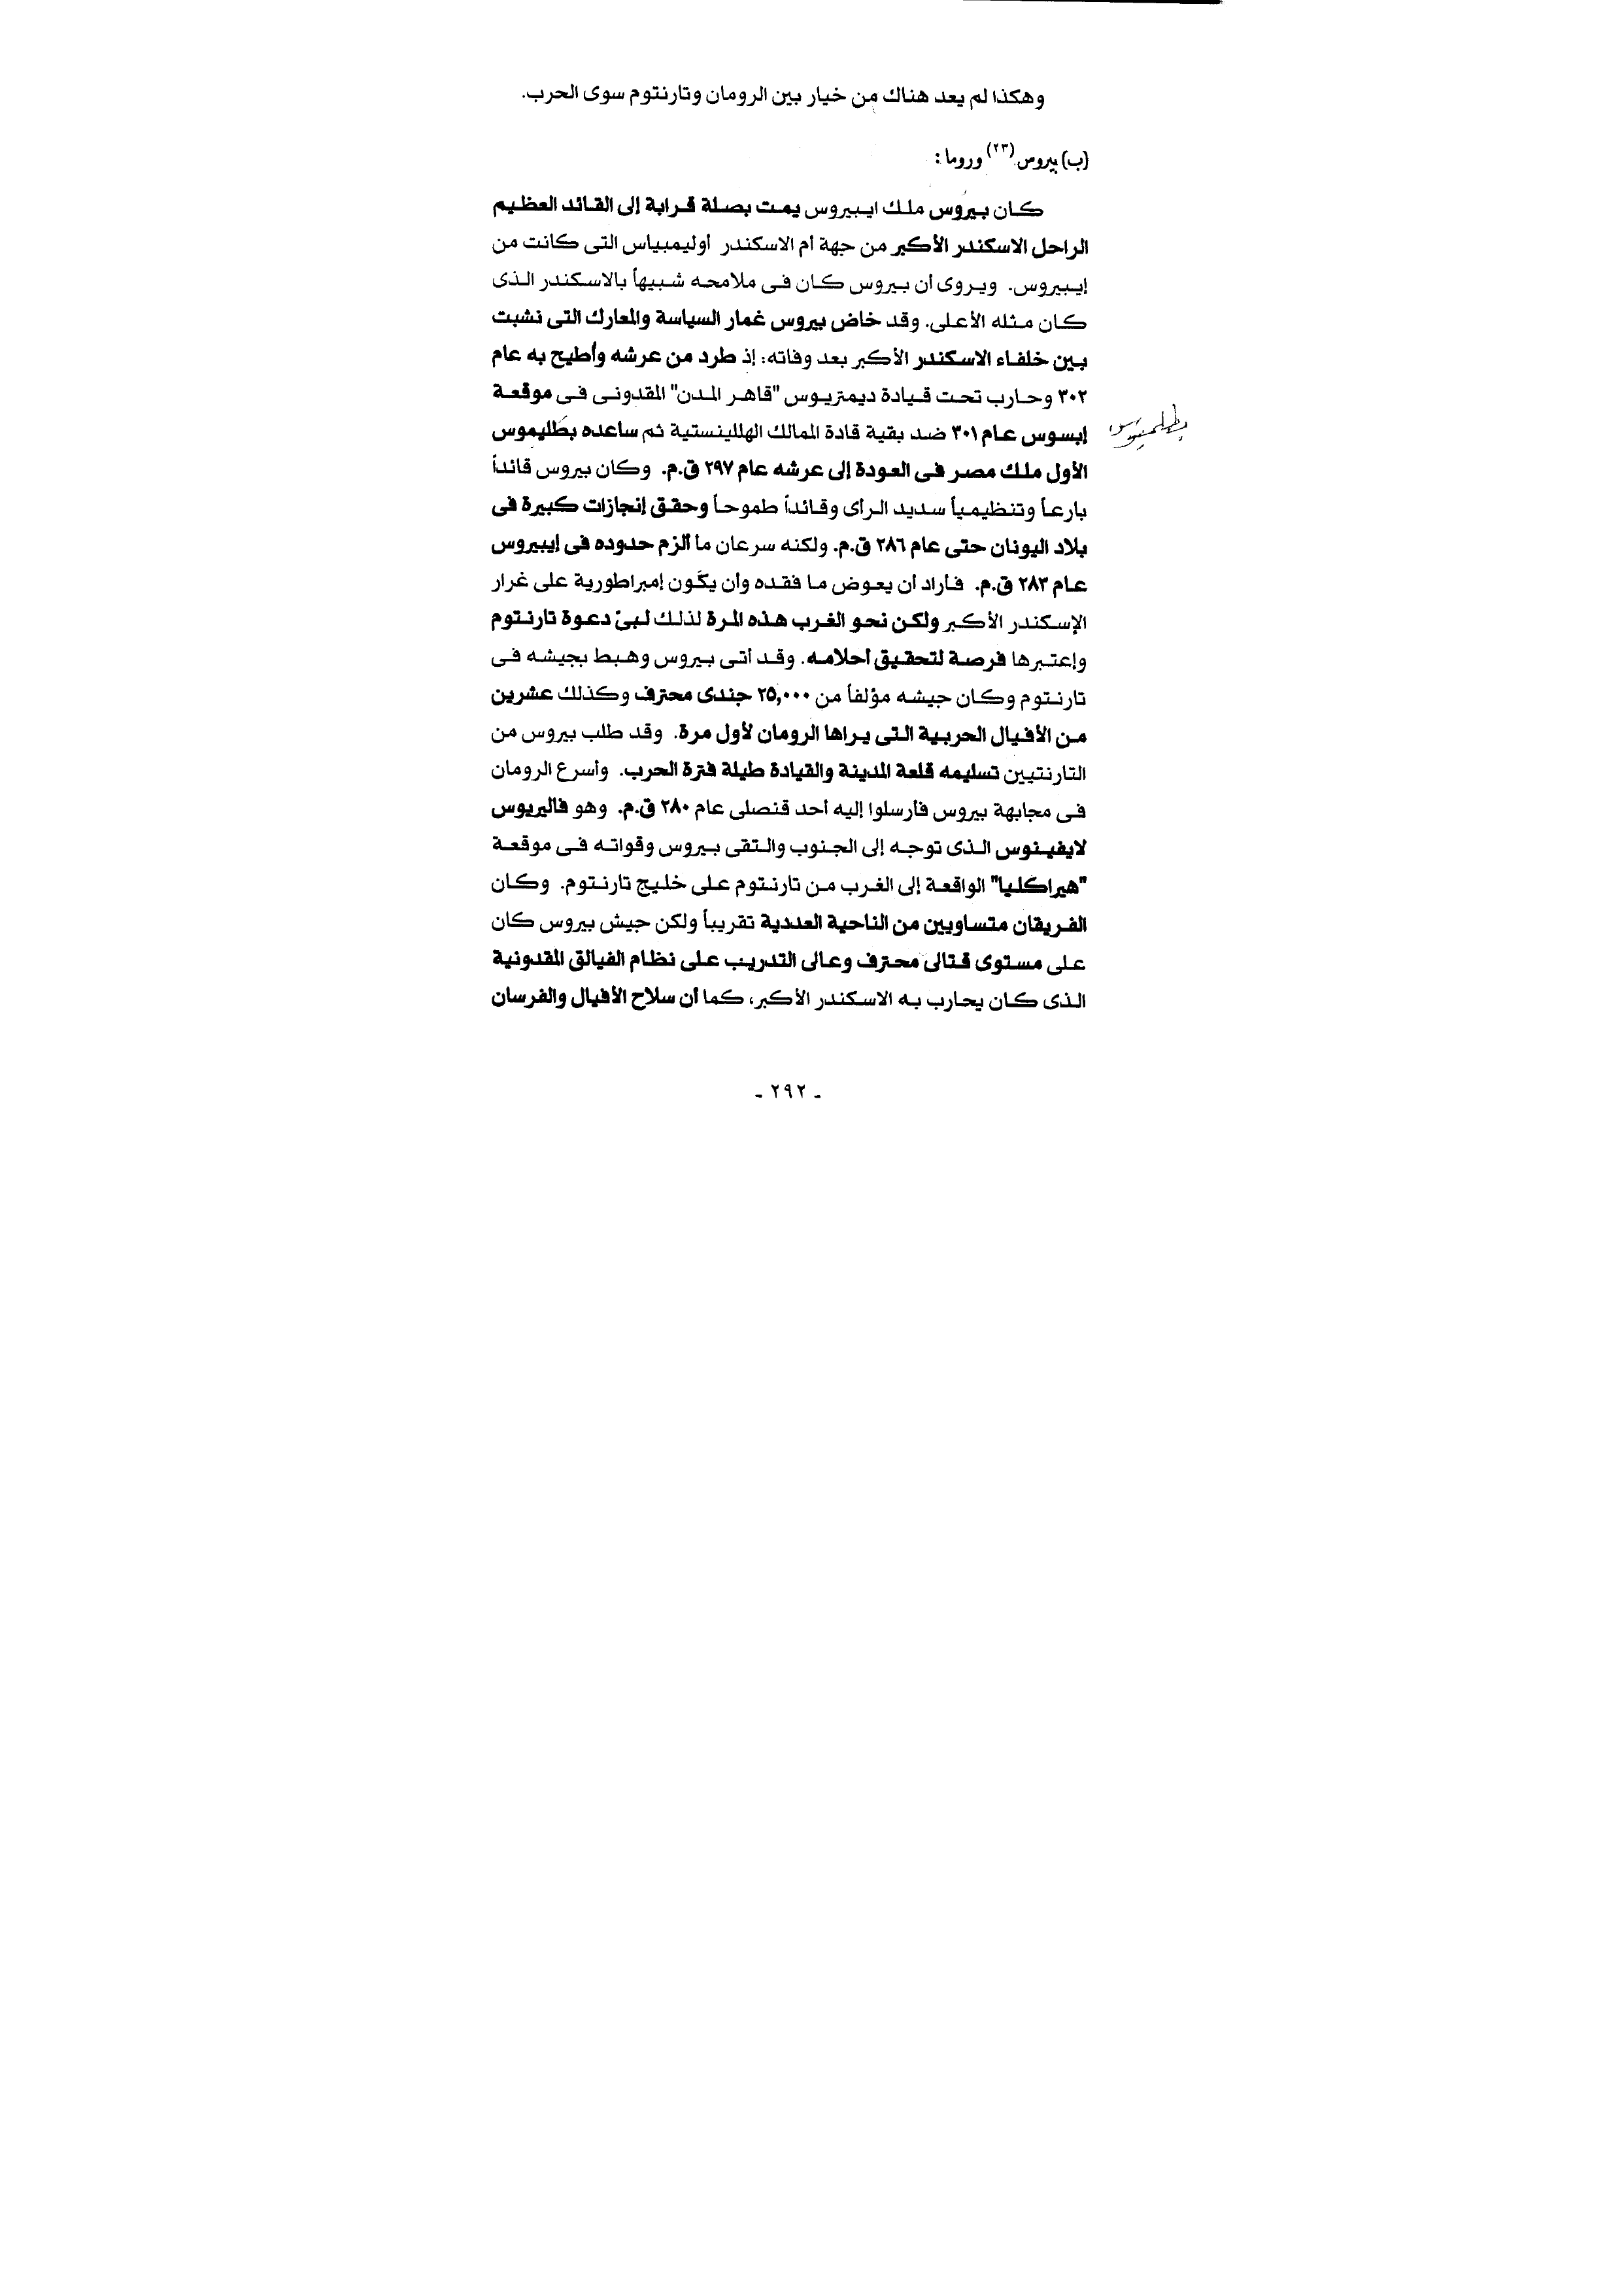 وهكذا لم يعد هناك من خيار بين الرومان وتارنتوم سوى الحرب.
(ب) بيروس(٢٣) وروما :
كان بيروس ملك ايبيروس يمت بصلة قرابة إلى القائد العظيم
الراحل الاسكندر الأكبر من جهة أم الاسكندر أوليمبياس التى كانت من
إيبيروس. ويروى أن بيروس كان فى ملامحه شبيهاً بالاسكندر الذى
كان مثله الأعلى. وقد خاض بيروس غمار السياسة والمعارك التى نشبت
بين خلفاء الاسكندر الأكبر بعد وفاته: إذ طرد من عرشه وأطيح به عام
٣٠٢ وحارب تحت قيادة ديمتريوس "قاهر المدن" المقدونى فى موقعة
إبسوس عام ٣٠١ ضد بقية قادة الممالك الهللينستية ثم ساعده بطليموس
الأول ملك مصر فى العودة إلى عرشه عام ٢٩٧ ق.م. وكان بيروس قائداً
بارعاً وتنظيمياً سديد الرأى وقائداً طموحاً وحقق إنجازات كبيرة فى
بلاد اليونان حتى عام ٢٨٦ ق.م. ولكنه سرعان ما ألزم حدوده فى إيبيروس
عام ٢٨٣ ق.م. فأراد أن يعوض ما فقده وأن يكَون إمبراطورية على غرار
الإسكندر الأكبر ولكن نحو الغرب هذه المرة لذلك لبىّ دعوة تارنتوم
وإعتبرها فرصة لتحقيق أحلامه. وقد أتى بيروس وهبط بجيشه فى
تارنتوم وكان جيشه مؤلفاً من ٢٥,٠٠٠ جندى محترف وكذلك عشرين
من الأفيال الحربية التى يراها الرومان لأول مرة. وقد طلب بيروس من
التارنتيين تسليمه قلعة المدينة والقيادة طيلة فترة الحرب. وأسرع الرومان
فى مجابهة بيروس فأرسلوا إليه أحد قنصلى عام ٢٨٠ ق.م. وهو فاليريوس
لايفينوس الذى توجه إلى الجنوب والتقى بيروس وقواته فى موقعة
"هيراكليا" الواقعة إلى الغرب من تارنتوم على خليج تارنتوم. وكان
الفريقان متساويين من الناحية العددية تقريباً ولكن جيش بيروس كان
على مستوى قتالى محترف وعالى التدريب على نظام الفيالق المقدونية
الذى كان يحارب به الاسكندر الأكبر، كما أن سلاح الأفيال والفرسان
- ٢٩٢ -